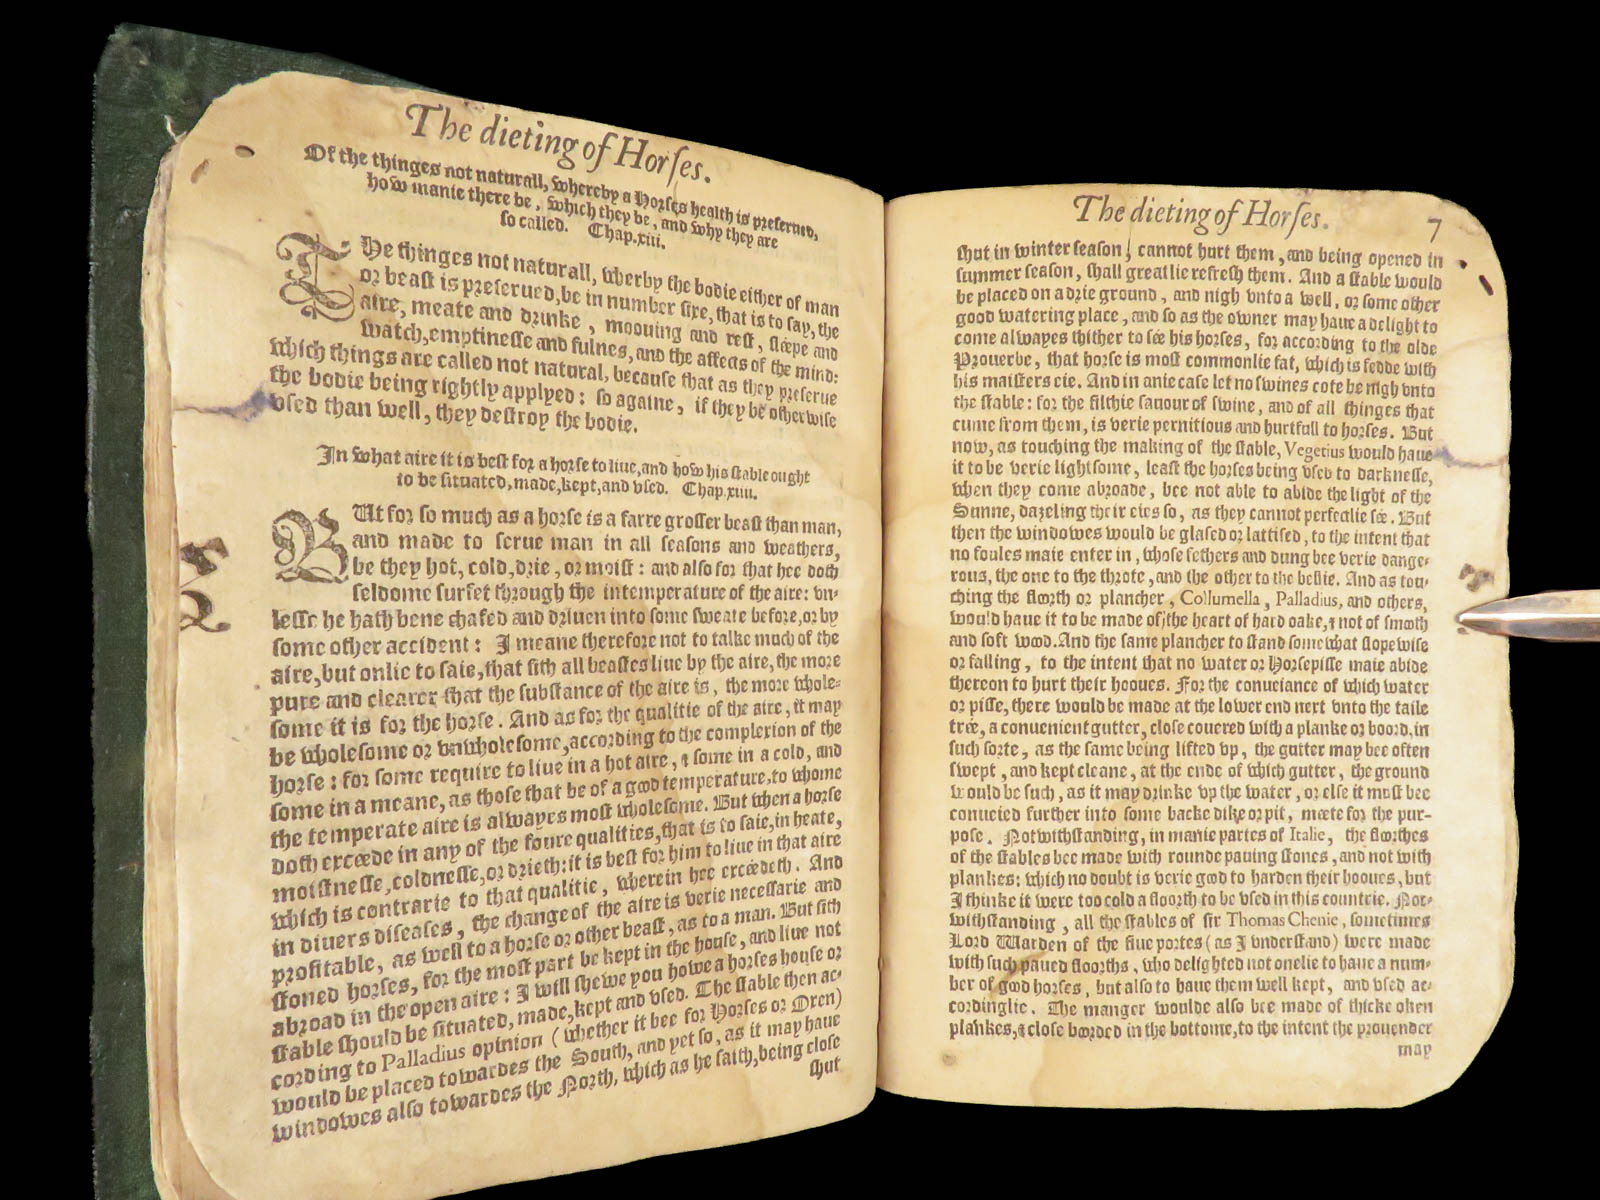 The dieting of Horſes.
Of the thinges not naturall, whereby a Horſes health is preſerued,
how manie there be, which they be, and why they are
ſo called. Chap.xiii.
THe thinges not naturall, wherby the bodie either of man
or beaſt is preſerued, be in number ſixe, that is to ſay, the
aire, meate and drinke, moouing and reſt, ſleepe and
watch, emptineſſe and fulnes, and the affects of the mind:
which things are called not natural, becauſe that as they preſerue
the bodie being rightly applyed: ſo againe, if they be otherwiſe
vſed than well, they deſtroy the bodie.
In what aire it is beſt for a horſe to liue, and how his ſtable ought
to be ſituated, made, kept, and vſed. Chap.xiiii.
BUt for ſo much as a horſe is a farre groſſer beaſt than man,
and made to ſerue man in all ſeaſons and weathers,
be they hot, cold, drie, or moiſt: and alſo for that hee doth
ſeldome ſurfet through the intemperature of the aire: vn-
leſſe he hath bene chafed and driuen into ſome ſweate before, or by
ſome other accident: I meane therefore not to talke much of the
aire, but onlie to ſaie, that ſith all beaſtes liue by the aire, the more
pure and clearer that the ſubſtance of the aire is, the more whole-
ſome it is for the horſe. And as for the qualitie of the aire, it may
be wholeſome or vnwholeſome, according to the complexion of the
horſe: for ſome require to liue in a hot aire, & ſome in a cold, and
ſome in a meane, as thoſe that be of a good temperature, to whome
the temperate aire is alwayes moſt wholeſome. But when a horſe
doth exceede in any of the foure qualities, that is to ſaie, in heate,
moiſtneſſe, coldneſſe, or drieth: it is beſt for him to liue in that aire
which is contrarie to that qualitie, wherein hee exceedeth. And
in diuers diſeaſes, the change of the aire is verie neceſſarie and
profitable, as well to a horſe or other beaſt, as to a man. But ſith
ſtoned horſes, for the moſt part be kept in the houſe, and liue not
abroad in the open aire: I will ſhewe you howe a horſes houſe or
ſtable ſhould be ſituated, made, kept and vſed. The ſtable then ac-
cording to Palladius opinion (whether it bee for Horſes or Oxen)
would be placed towardes the South, and yet ſo, as it may haue
windowes alſo towardes the North, which as he ſaith, being cloſe
ſhut
The dieting of Horſes. 7
ſhut in winter ſeaſon, cannot hurt them, and being opened in
ſummer ſeaſon, ſhall greatlie refreſh them. And a ſtable would
be placed on a drie ground, and nigh vnto a well, or ſome other
good watering place, and ſo as the owner may haue a delight to
come alwayes thither to ſee his horſes, for according to the olde
Prouerbe, that horſe is moſt commonlie fat, which is fedde with
his maiſters eie. And in anie caſe let no ſwines cote be nigh vnto
the ſtable: for the filthie ſauour of ſwine, and of all thinges that
cume from them, is verie pernitious and hurtfull to horſes. But
now, as touching the making of the ſtable, Vegetius would haue
it to be verie lightſome, leaſt the horſes being vſed to darkneſſe,
when they come abroade, bee not able to abide the light of the
Sunne, dazeling their eies ſo, as they cannot perfectlie ſee. But
then the windowes would be glaſed or lattiſed, to the intent that
no foules maie enter in, whoſe fethers and dung bee verie dange-
rous, the one to the throte, and the other to the bellie. And as tou-
ching the floorth or plancher, Collumella, Palladius, and others,
would haue it to be made of the heart of hard oake, & not of ſmooth
and ſoft wood. And the ſame plancher to ſtand ſomewhat ſlopewiſe
or falling, to the intent that no water or Horſepiſſe maie abide
thereon to hurt their hooues. For the conueiance of which water
or piſſe, there would be made at the lower end next vnto the taile
tree, a conuenient gutter, cloſe couered with a planke or boord, in
ſuch ſorte, as the ſame being lifted vp, the gutter may bee often
ſwept, and kept cleane, at the ende of which gutter, the ground
would be ſuch, as it may drinke vp the water, or elſe it muſt bee
conueied further into ſome backe dike or pit, meete for the pur-
poſe. Notwithſtanding, in manie partes of Italie, the floorthes
of the ſtables bee made with rounde pauing ſtones, and not with
plankes: which no doubt is verie good to harden their hooues, but
I thinke it were too cold a floorth to be vſed in this countrie. Not-
withſtanding, all the ſtables of ſir Thomas Chenie, ſometimes
Lord Warden of the fiue portes (as I vnderſtand) were made
with ſuch paued floorths, who delighted not onelie to haue a num-
ber of good horſes, but alſo to haue them well kept, and vſed ac-
cordinglie. The manger woulde alſo bee made of thicke oken
plankes, & cloſe boorded in the bottome, to the intent the prouender
may